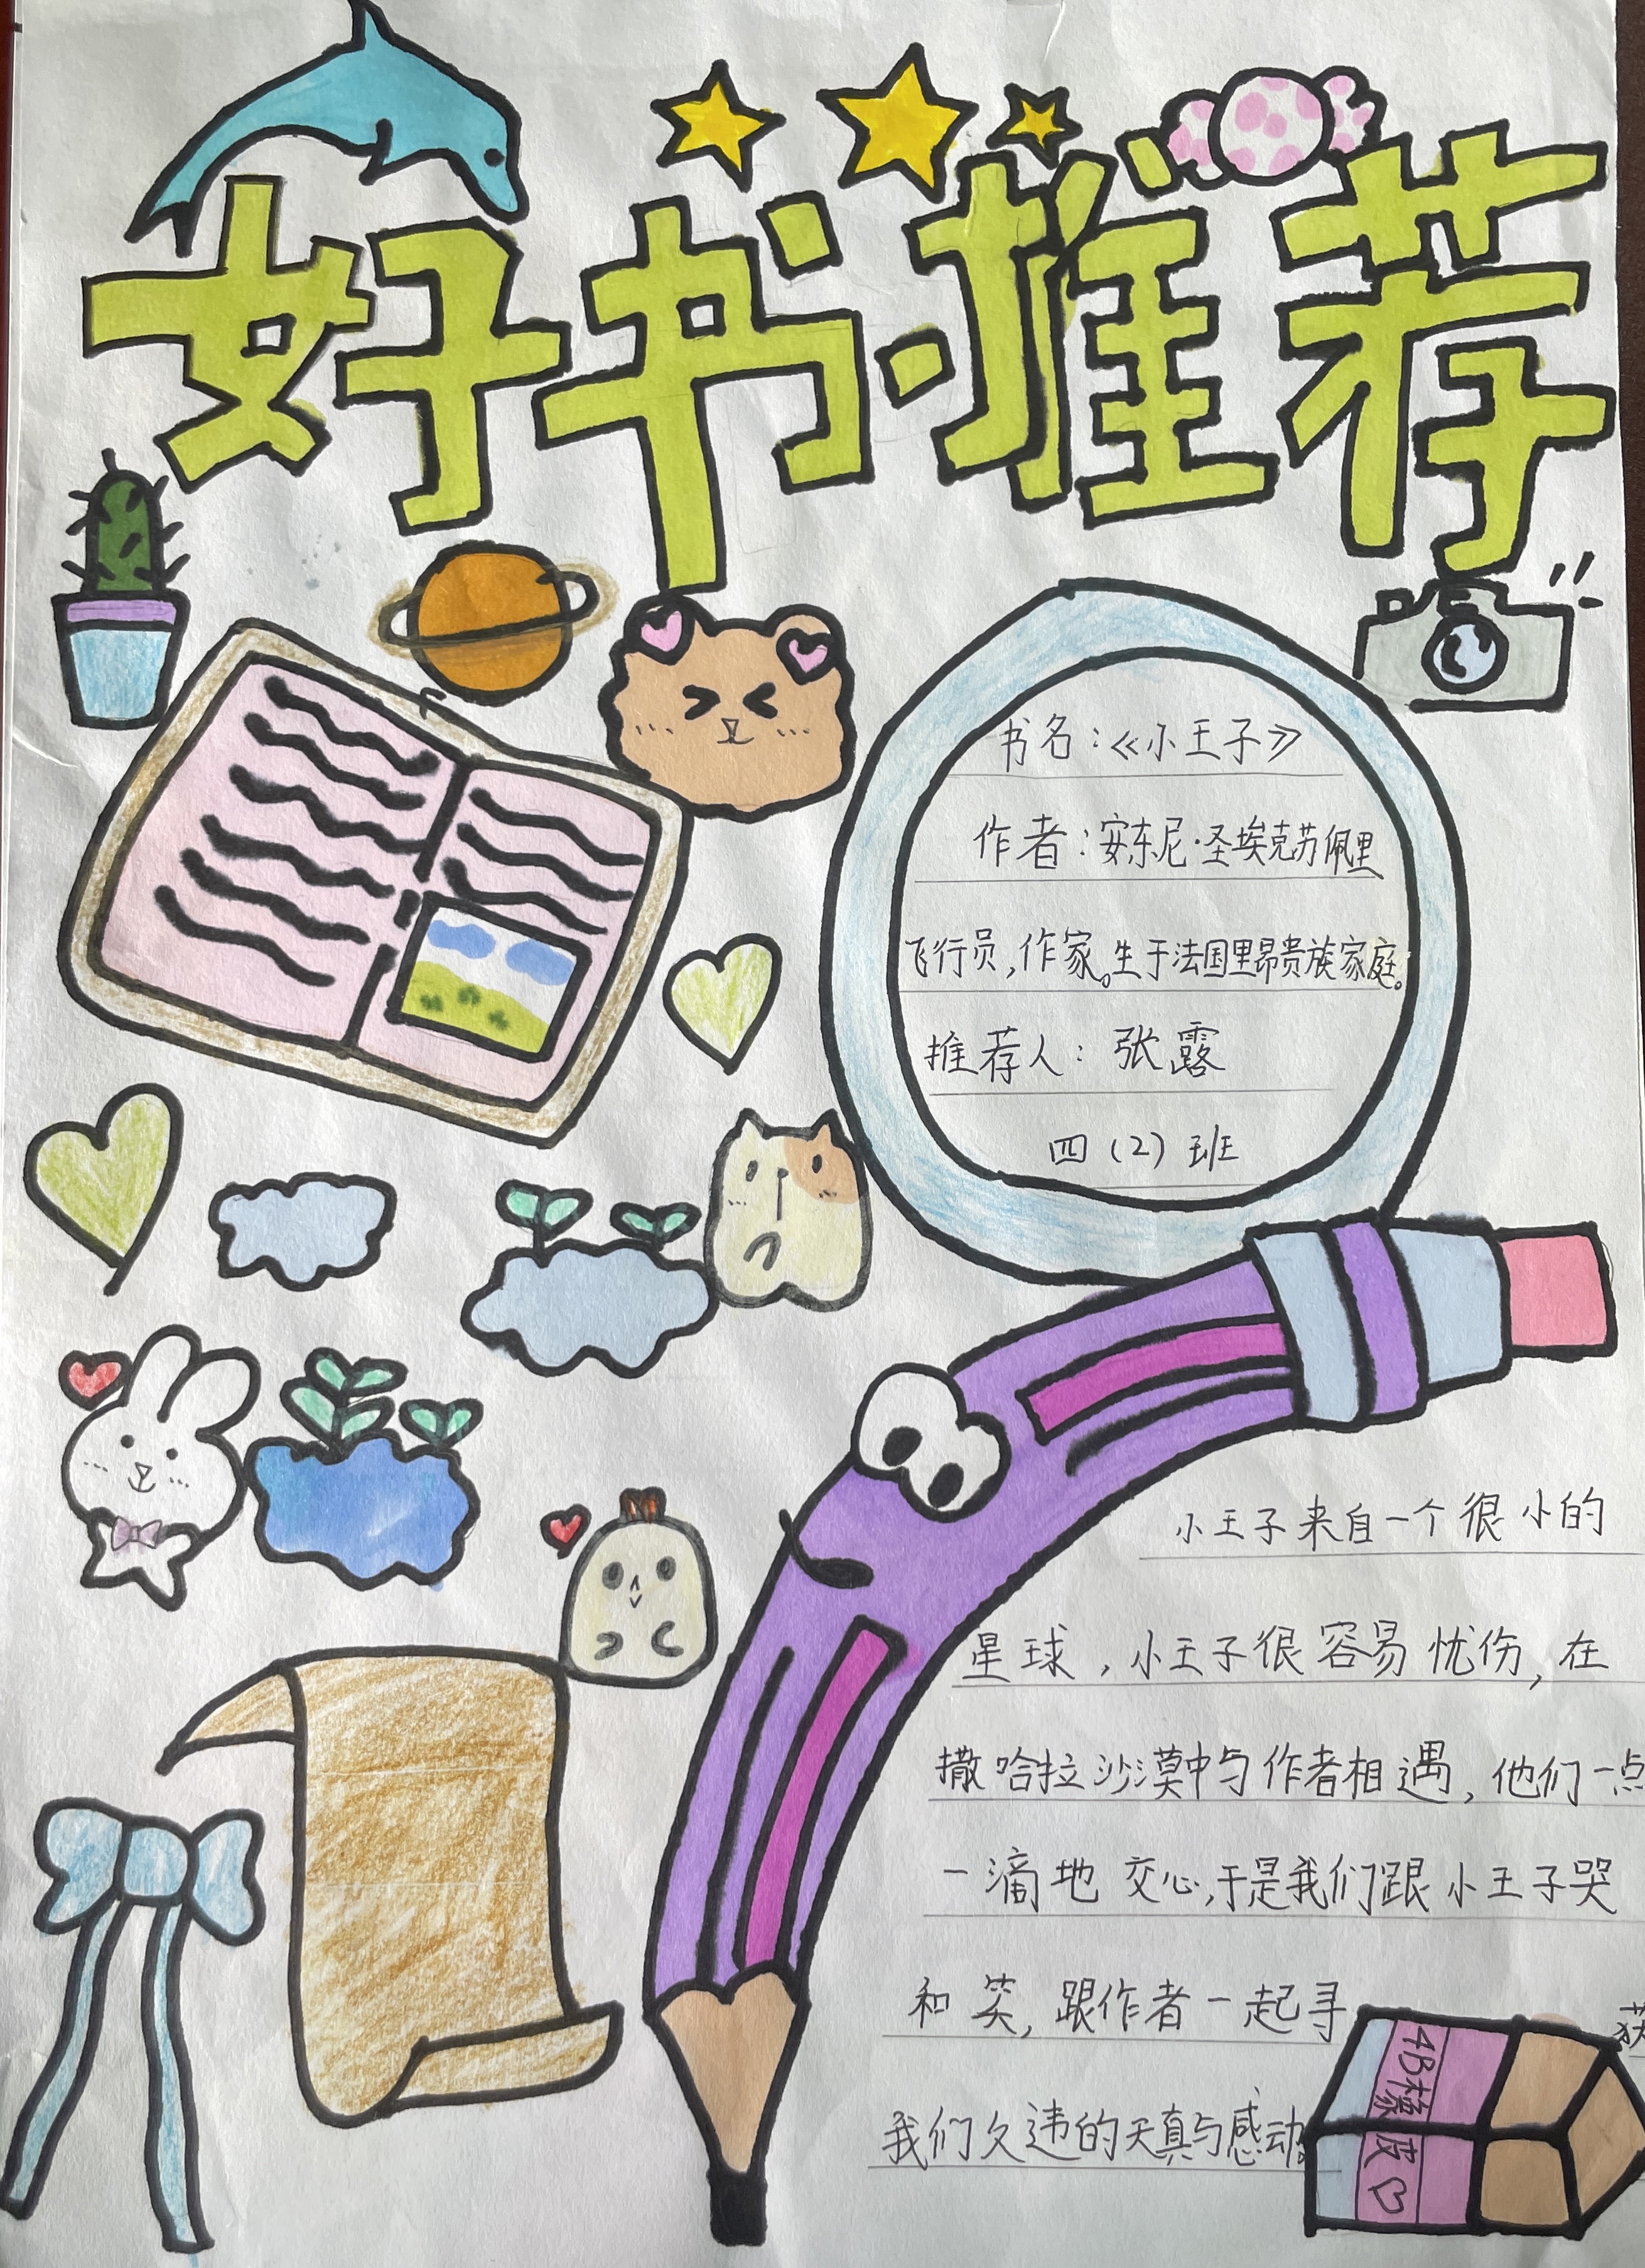 好书推荐
书名：《小王子》
作者：安东尼·圣埃克苏佩里
飞行员，作家。生于法国里昂贵族家庭。
推荐人：张露
四（2）班
小王子来自一个很小的
星球，小王子很容易忧伤，在
撒哈拉沙漠中与作者相遇，他们一点
一滴地交心，于是我们跟小王子哭
和笑，跟作者一起寻
我们久违的天真与感动。
4B橡皮